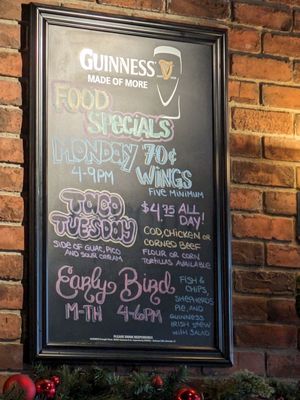 GUINNESS
MADE OF MORE
FOOD
SPECIALS
MONDAY 70¢
4-9PM WINGS
FIVE MINIMUM
TACO
TUESDAY
SIDE OF GUAC, PICO
AND SOUR CREAM
$4.75 ALL
DAY!
COD, CHICKEN OR
CORNED BEEF
FLOUR OR CORN
TORTILLAS AVAILABLE
Early Bird
M-TH 4-6PM
FISH &
CHIPS,
SHEPHERDS
PIE, AND
GUINNESS
IRISH STEW
WITH SALAD
PLEASE DRINK RESPONSIBLY.